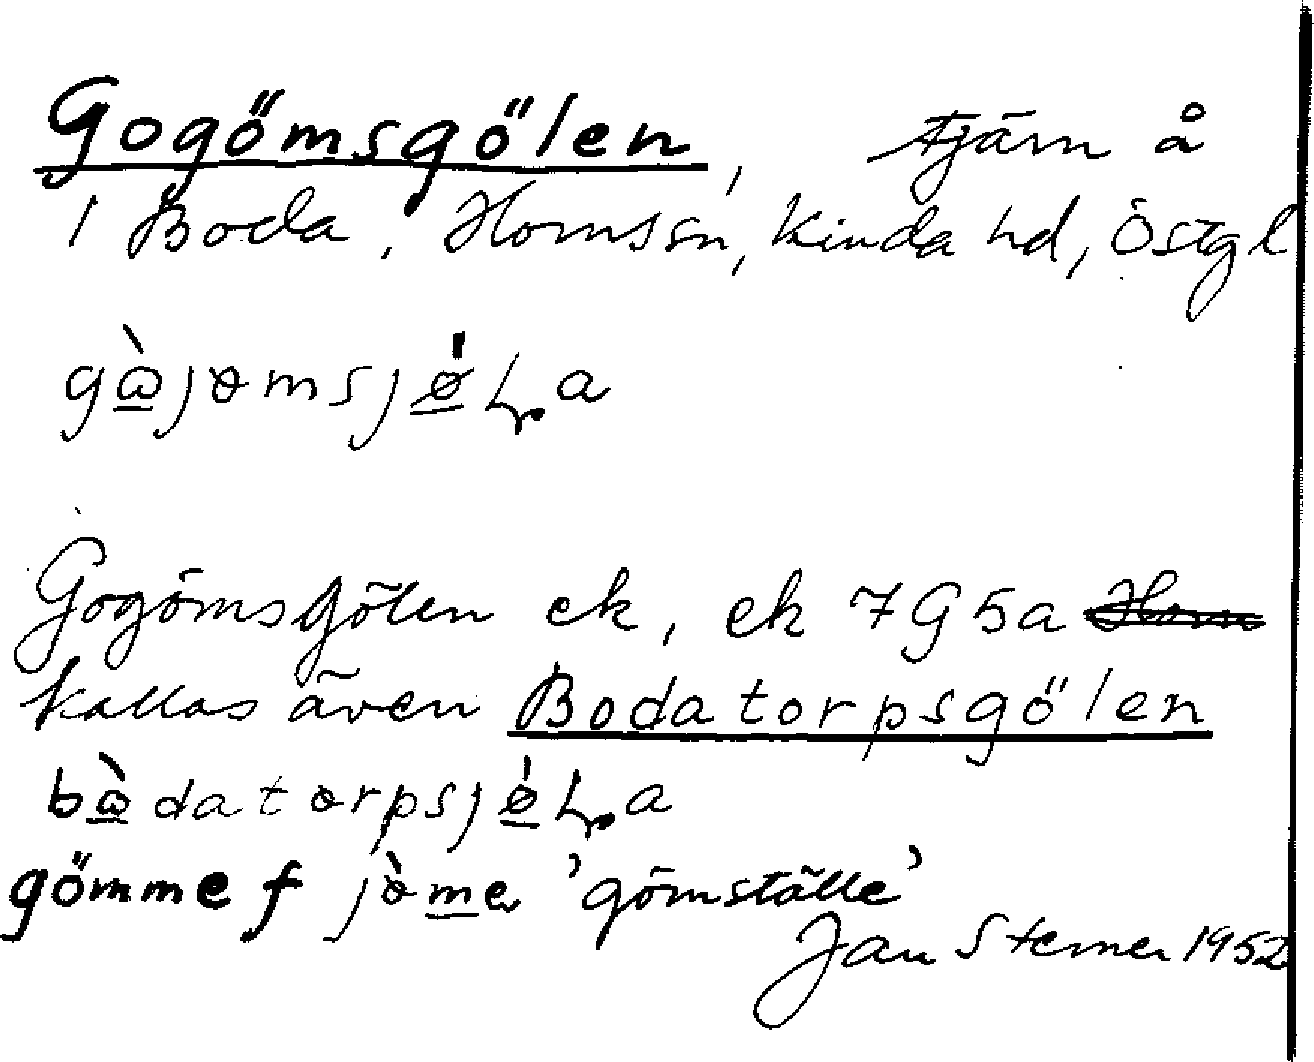 Gogömsgölen, tjärn å
1 Boda, Horns sn, Kinda hd, Östgl
Gogömsgölen ek, ek 7G5a Horn
kallas även Bodatorpsgölen
gömme f 'gömställe'
Jan Sterner 1952